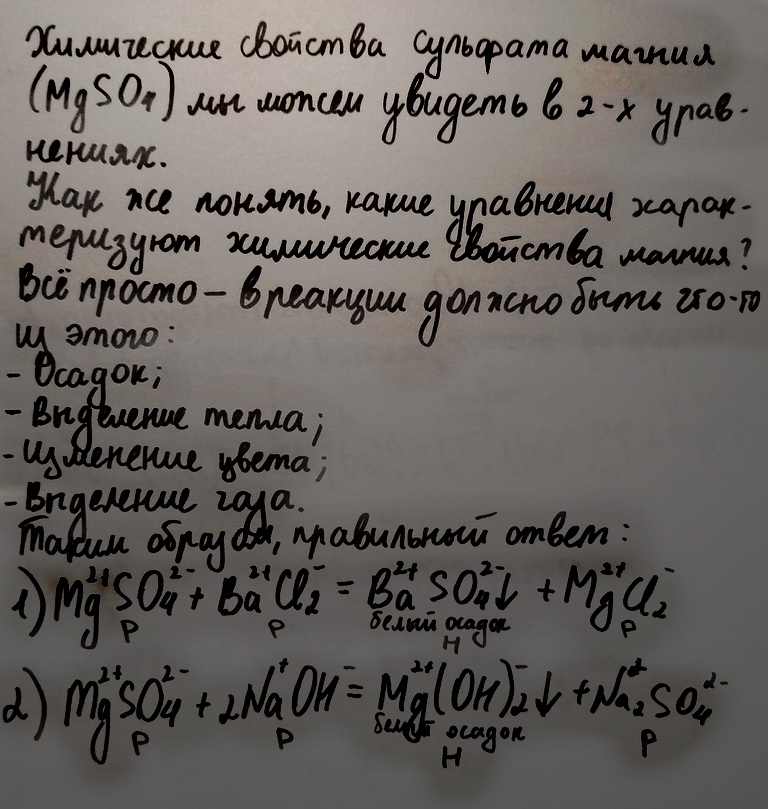 Химические свойства сульфата магния
(MgSO₄) мы можем увидеть в 2-х урав-
нениях.
Как же понять, какие уравнения харак-
теризуют химические свойства магния?
Всё просто – в реакции должно быть что-то
из этого:
- Осадок;
- Выделение тепла;
- Изменение цвета;
- Выделение газа.
Таким образом, правильный ответ:
1) Mg²⁺SO₄²⁻ + Ba²⁺Cl₂⁻ = Ba²⁺SO₄²⁻↓ + Mg²⁺Cl₂⁻
белый осадок
Р Р Н Р
2) Mg²⁺SO₄²⁻ + 2Na⁺OH⁻ = Mg²⁺(OH)₂⁻↓ + Na₂⁺SO₄²⁻
белый осадок
Р Р Н Р